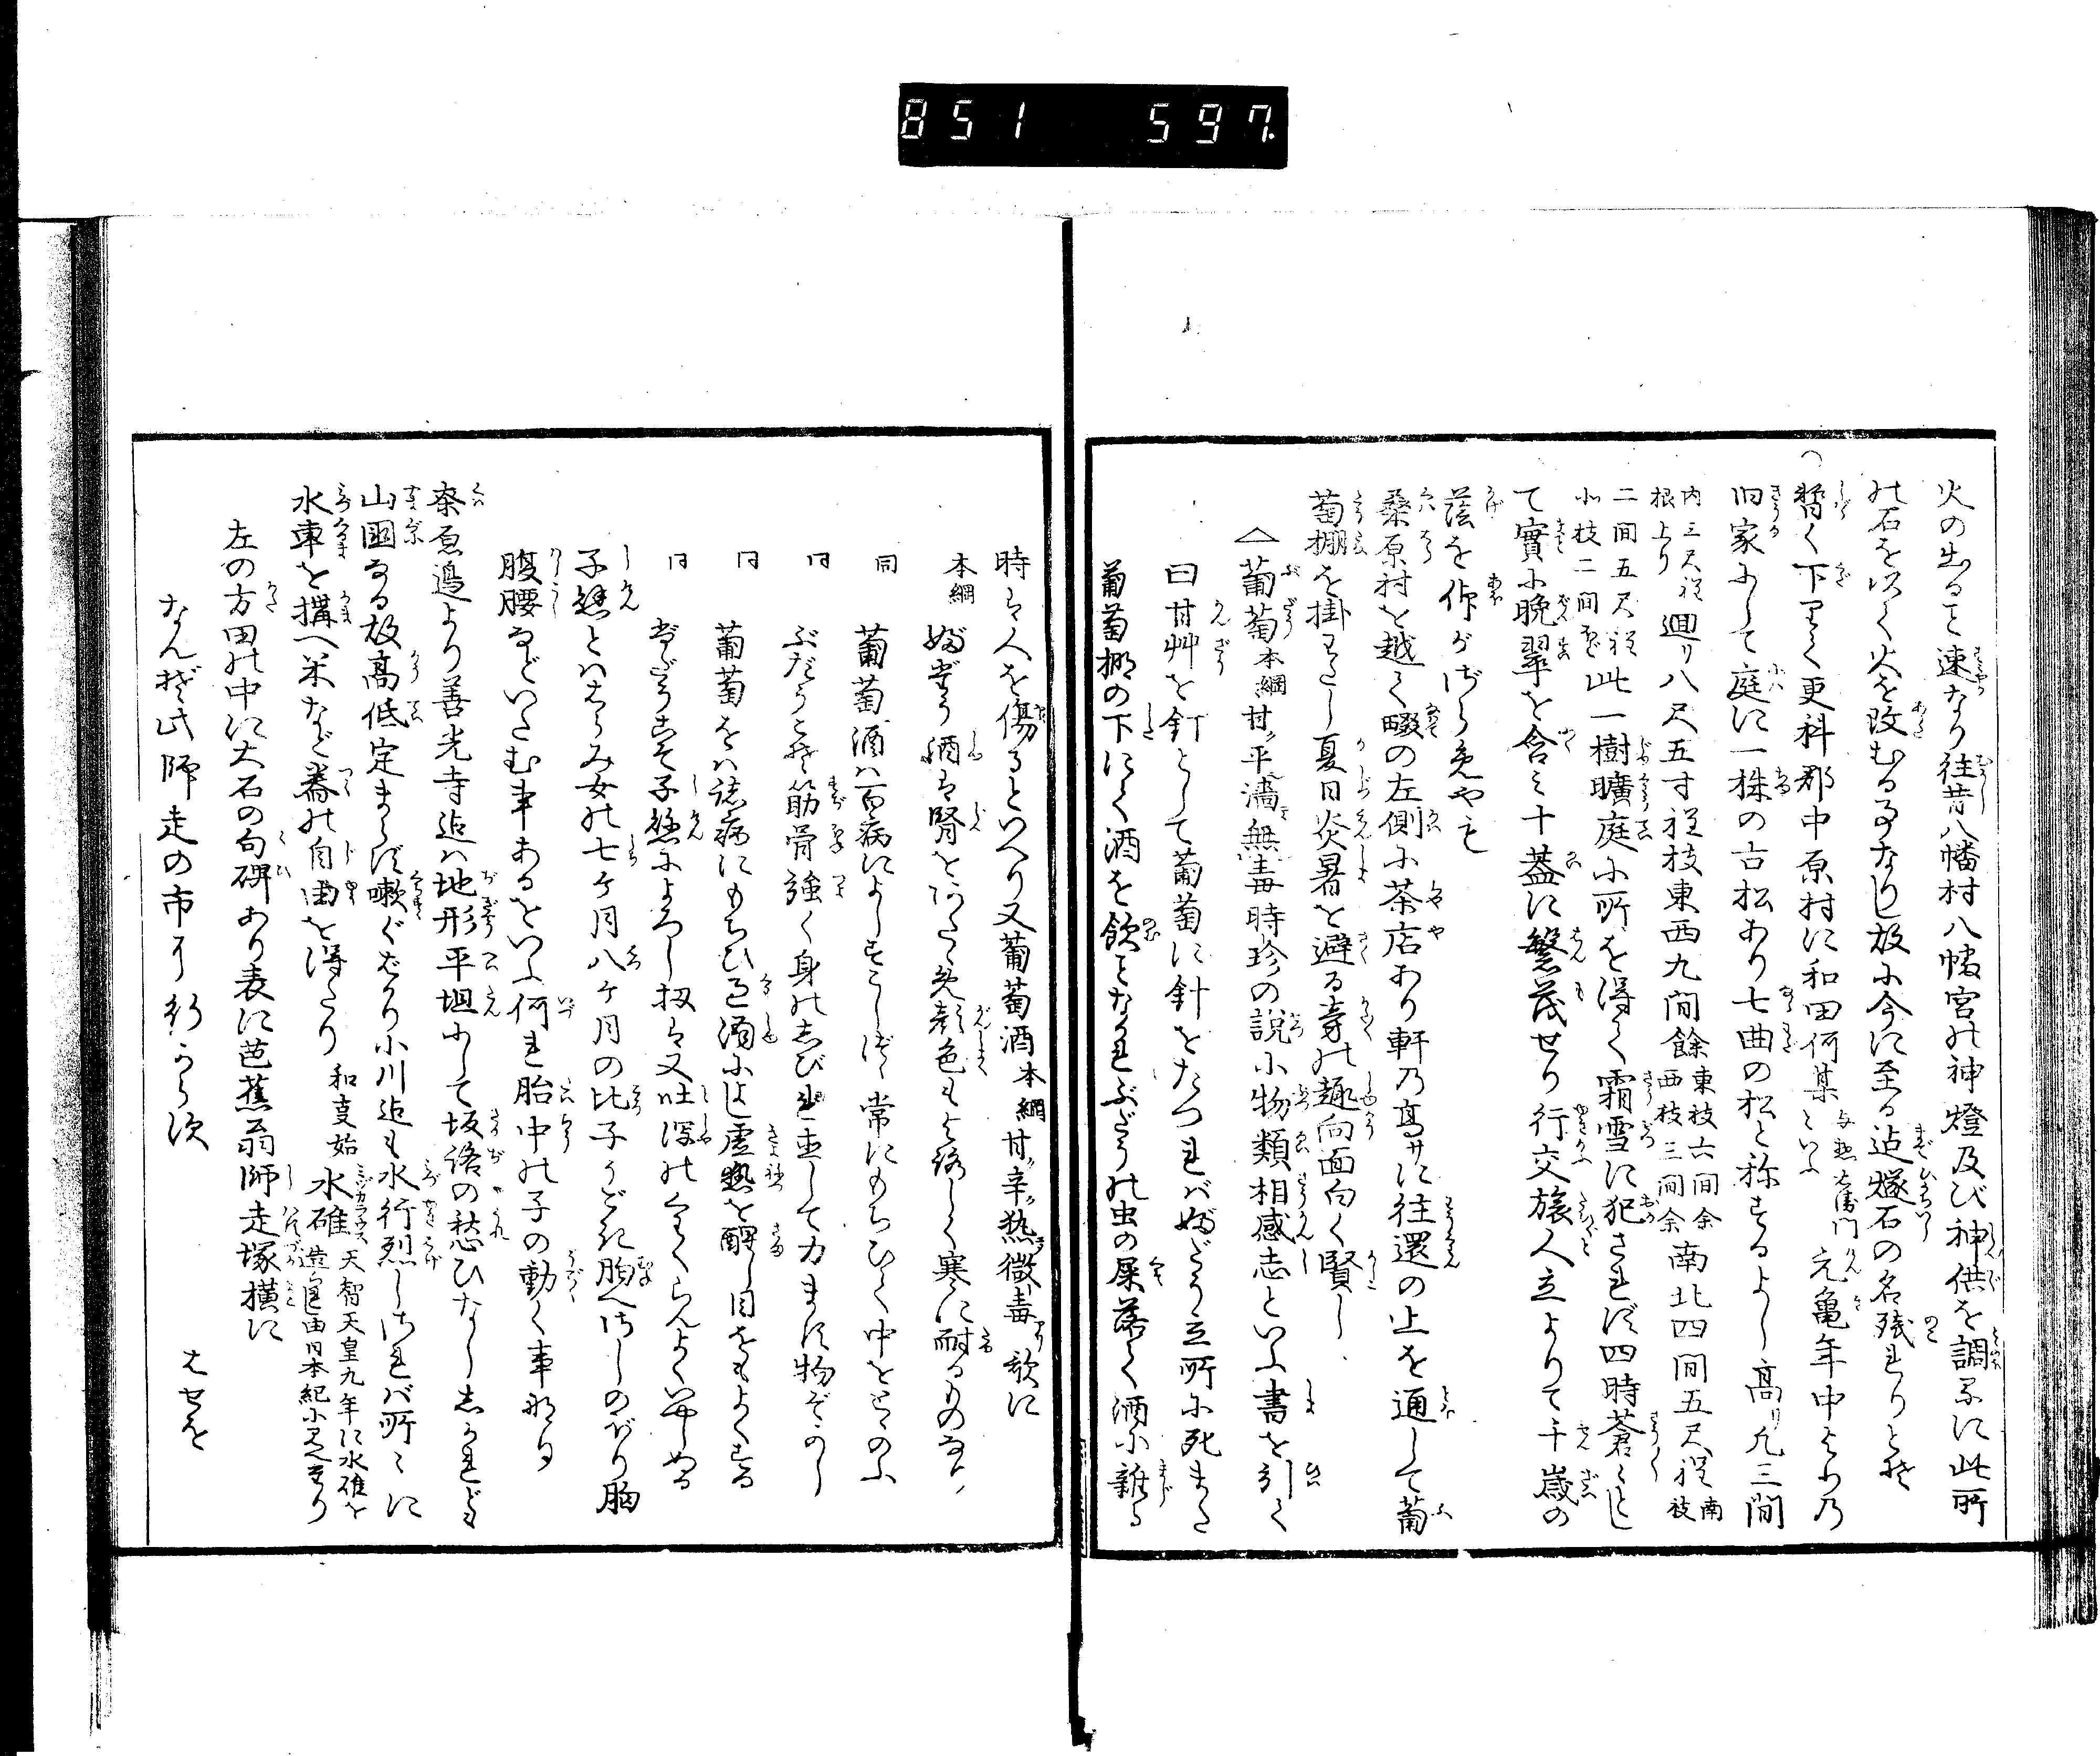 851 597
火の出ること速なり往昔八幡村八幡宮の神燈及び神供を調ふに此所
の石を以て火を改むる事なりし故に今に至る迄燧石の名残れりとぞ
暫く下りて更科郡中原村に和田何某といふ 元亀年中よりの
旧家にして庭に一株の古松あり七曲の松と称するよし高サ九三間
内三尺程根上り 廻リ八尺五寸程枝東西九間餘 東枝六間余西枝三間余 南北四間五尺程 南枝
二間五尺程北枝二間ほど 此一樹曠庭に所を得て霜雪に犯されず四時蒼々とし
て實に晩翠を含み十蓋に繁茂せり行交旅人立よりて千歳の
蔭を仰がざらめやも
桑原村を越て畷の左側に茶店あり軒の高サに往還の上を通して葡
萄棚を掛わたし夏日炎暑を避る 趣向面白く賢し
△葡萄 本綱 甘ク平濇無毒時珍の説に物類相感志といふ書を引て
曰甘艸を釘として葡萄に針をたつればぶだう立所に死また
葡萄棚の下にて酒を飲ことなかれぶだうの虫の屎落て酒に雜る
時は人を傷るといへり又葡萄酒 本綱 甘ク辛ク熱微毒アリ歌に
本綱 ぶだう酒は腎を あたゝめ顔色もよろしく寒に耐るものなり
同 葡萄酒は百病によしすこしづゝ常にもちひて中をとゝのふ
同 ぶだうこそ筋骨強く身のしびれ して力ます物ぞかし
同 葡萄をば諸病にもちひ 酒によし虚熱を醒し目をもよくする
同 ぶだうこそ子懸によろし扨は又吐瀉の くらんよく やめる
子懸とははらみ女の七ケ月八ケ月の比子うごき胸へさしのぼり胸
腹腰などいたむ事あるをいふ何れ胎中の子の動く事なり
桒原邊より善光寺迄は地形平坦にして坂路の愁ひなし されども
山國なる故高低定まらず嗽ぐばかり小川迄も水行烈しければ所々に
水車を搆へ米など舂の自由を得たり 和事始 水碓 天智天皇九年に水碓を造 由日本紀に見えたり
左の方田の中に大石の句碑あり表に芭蕉翁師走塚横に
なんぞ此師走の市に行からす はせを